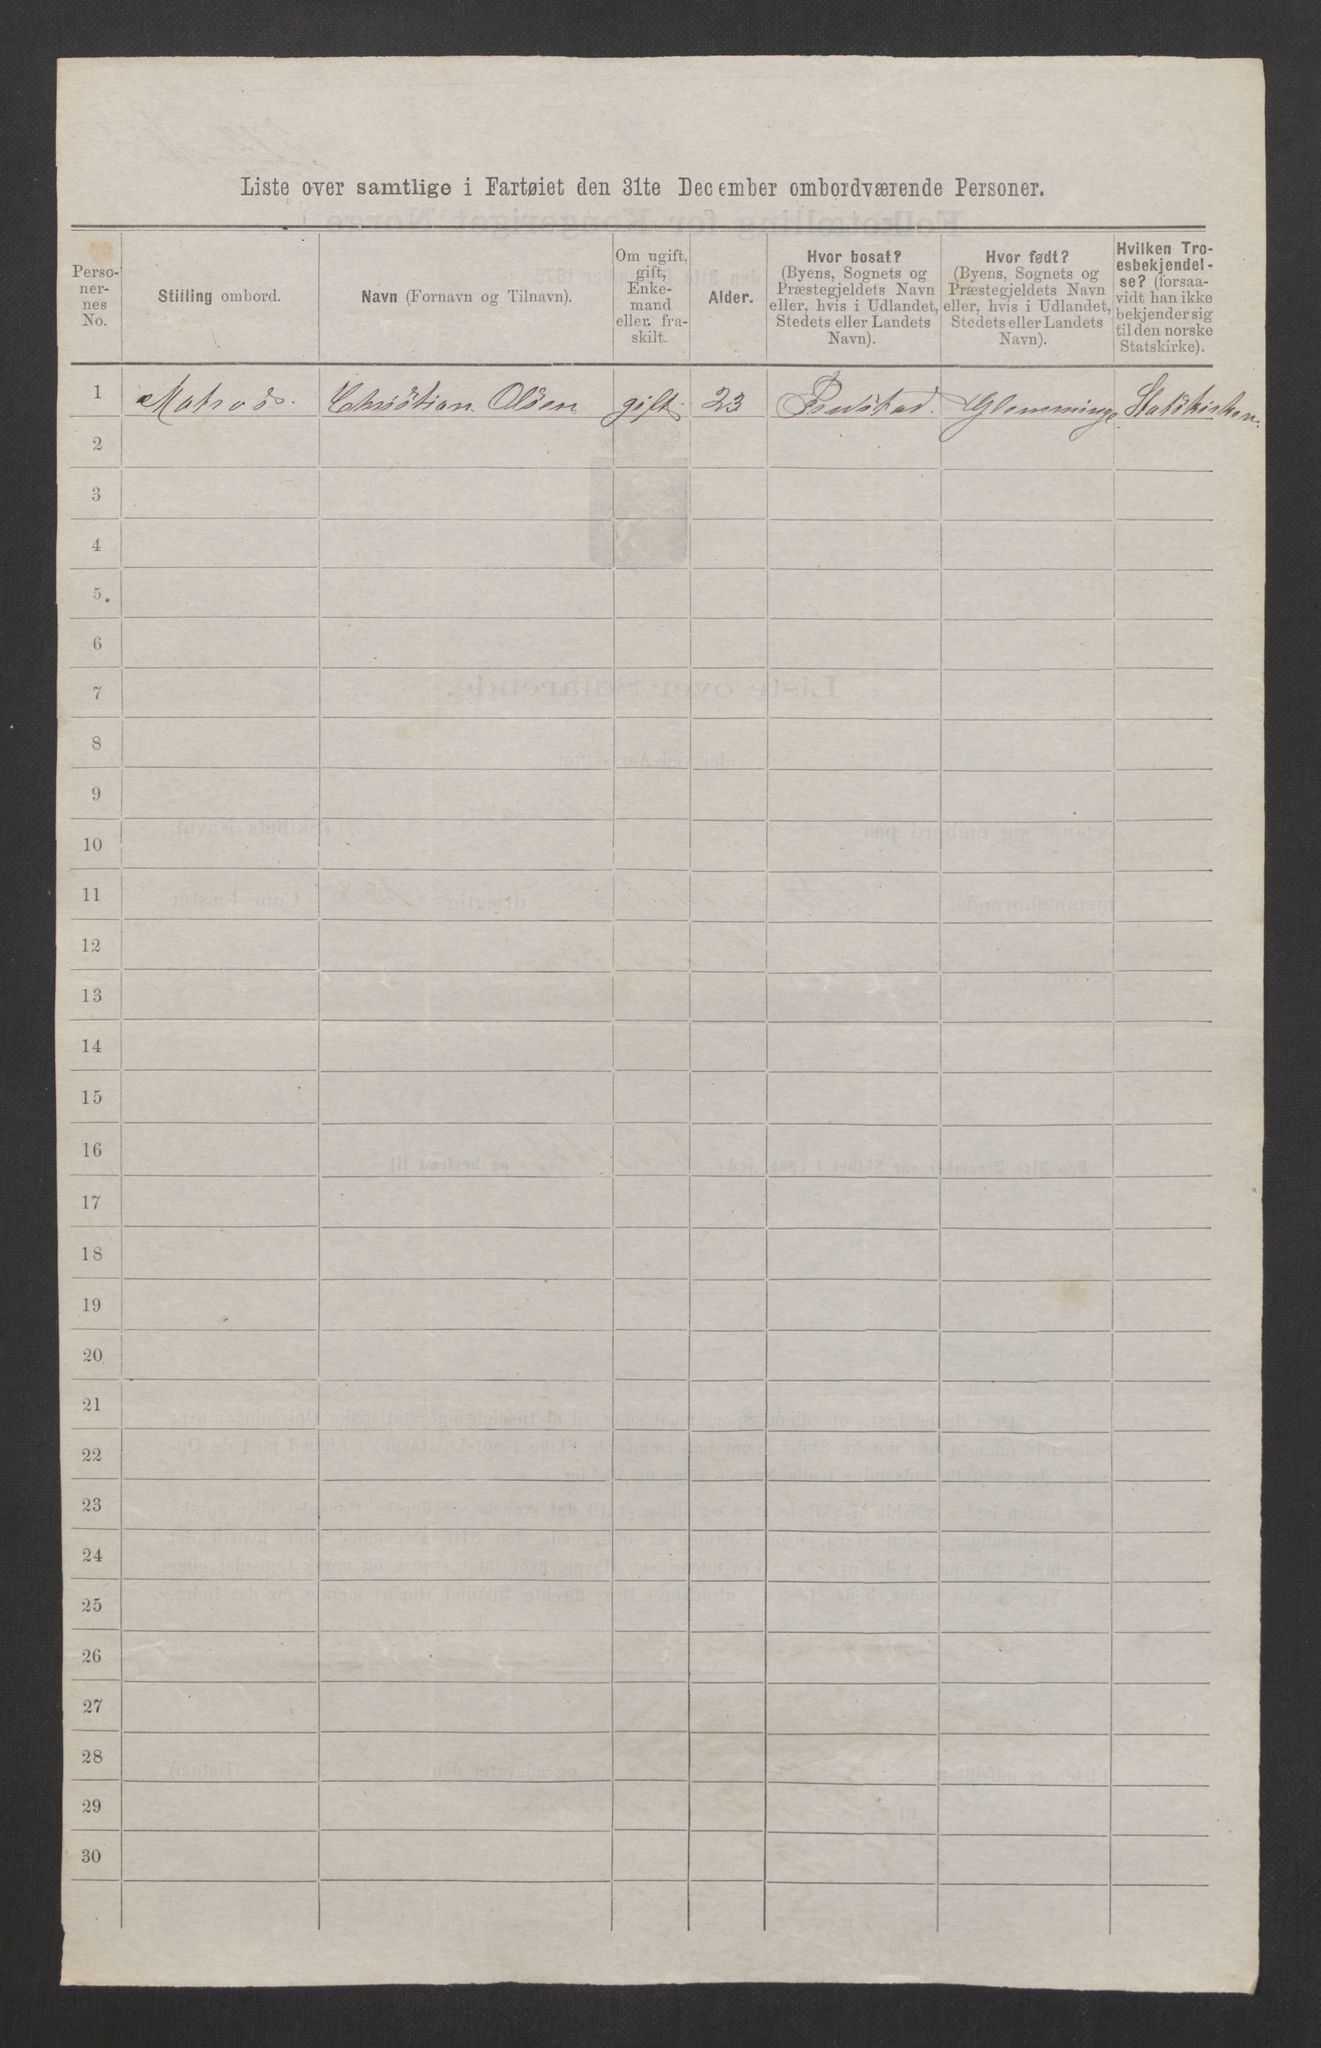 Liste over samtlige i Fartøiet den 31te December ombordværende Personer.
Perso-
ner-
nes
No.
Stilling ombord.
Navn (Fornavn og Tilnavn).
Om ugift,
gift,
Enke-
mand
eller fra-
skilt.
Alder.
Hvor bosat?
(Byens, Sognets og
Præstegjeldets Navn
eller, hvis i Udlandet,
Stedets eller Landets
Navn).
Hvor født?
(Byens, Sognets og
Præstegjeldets Navn
eller, hvis i Udlandet,
Stedets eller Landets
Navn).
Hvilken Tro-
esbekjendel-
se? (forsaa-
vidt han ikke
bekjender sig
til den norske
Statskirke).
1 Matros. Christian Olsen gift. 23 Glemminge Statskirken.
2
3
4
5
6
7
8
9
10
11
12
13
14
15
16
17
18
19
20
21
22
23
24
25
26
27
28
29
30